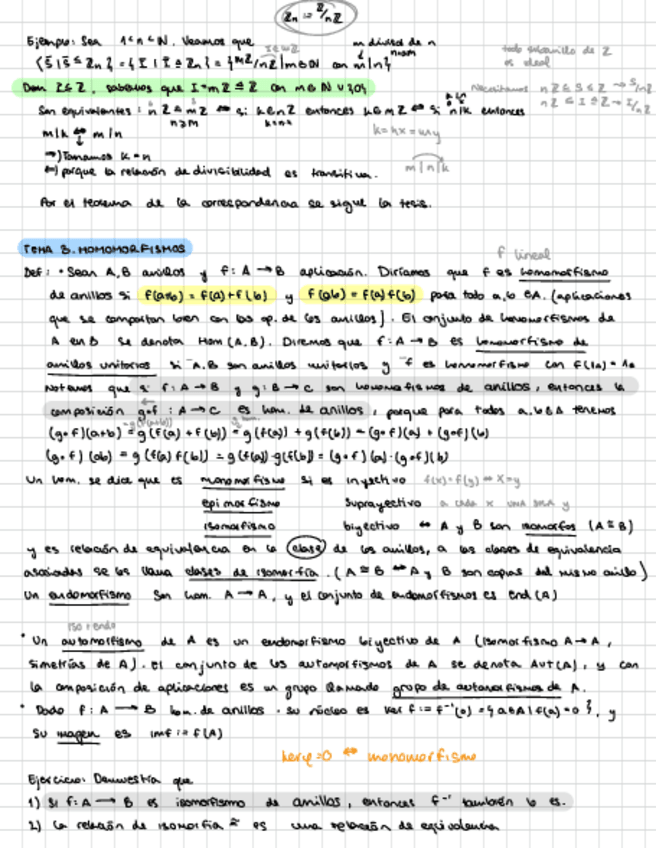 Zn := Z/nZ
Ejemplo: Sea 1<n∈N. Veamos que m divisor de n
todo subanillo de Z
es ideal
Dem I≤Z, sabemos que I=mZ ⊴ Z con m∈N∪{0}
Son equivalentes: nZ ⊆ mZ ⇔ si k∈nZ entonces k∈mZ ⇔ si n|k entonces
m|k ⇔ m|n
k=nx=mny
⇒) Tomamos k=n
⇐) porque la relación de divisibilidad es transitiva. m|n|k
Por el teorema de la correspondencia se sigue la tesis.
TEMA 3. HOMOMORFISMOS
f lineal
Def: · Sean A,B anillos y f: A → B aplicación. Diremos que f es homomorfismo
de anillos si f(a+b) = f(a)+f(b) y f(ab) = f(a)f(b) para todo a,b ∈A. (aplicaciones
que se comportan bien con las op. de los anillos). El conjunto de homomorfismos de
A en B se denota Hom (A,B). Diremos que f: A → B es homomorfismo de
anillos unitarios si A,B son anillos unitarios y f es homomorfismo con f(1A) = 1B
Notemos que si f: A → B y g: B → C son homomorfismos de anillos, entonces la
composición g∘f : A → C es hom. de anillos, porque para todos a,b∈A tenemos
(g∘f)(a+b) = g(f(a)+f(b)) = g(f(a)) + g(f(b)) = (g∘f)(a) + (g∘f)(b)
(g∘f)(ab) = g(f(a)f(b)) = g(f(a))·g(f(b)) = (g∘f)(a)·(g∘f)(b)
Un hom. se dice que es monomorfismo si es inyectivo f(x)=f(y) ⇔ x=y
epimorfismo suprayectivo a cada x una sola y
isomorfismo biyectivo ⇔ A y B son isomorfos (A≅B)
y es relación de equivalencia en la clase de los anillos, a las clases de equivalencia
asociadas se les llama clases de isomorfía. (A≅B ⇔ A y B son copias del mismo anillo)
Un endomorfismo son hom. A → A, y el conjunto de endomorfismos es End (A)
iso + endo
· Un automorfismo de A es un endomorfismo biyectivo de A (isomorfismo A→A,
simetrías de A). El conjunto de los automorfismos de A se denota Aut(A), y con
la composición de aplicaciones es un grupo llamado grupo de automorfismos de A.
· Dado f: A → B hom. de anillos · su núcleo es Ker f := f⁻¹(0) = {a∈A | f(a)=0}, y
su imagen es imf := f(A)
kerf=0 ⇔ monomorfismo
Ejercicio: Demuestra que
1) Si f: A → B es isomorfismo de anillos, entonces f⁻¹ también lo es.
2) La relación de isomorfía ≅ es una relación de equivalencia